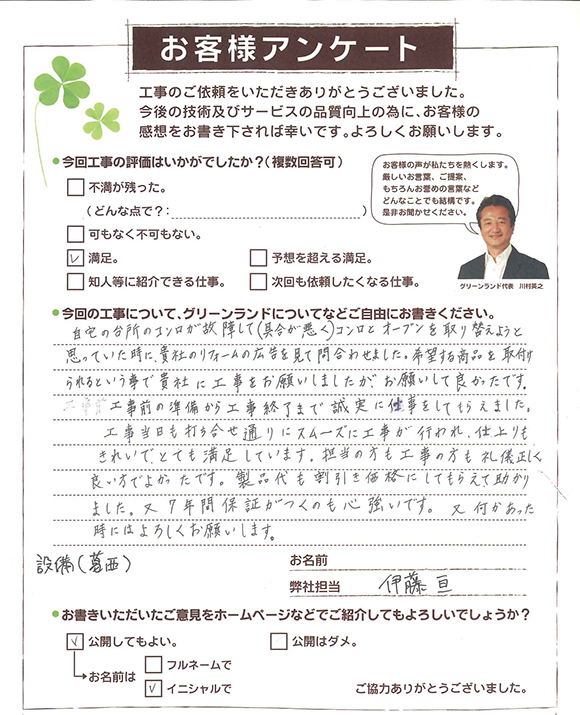 お客様アンケート
工事のご依頼をいただきありがとうございました。
今後の技術及びサービスの品質向上の為に、お客様の
感想をお書き下されば幸いです。よろしくお願いします。
●今回工事の評価はいかがでしたか?(複数回答可)
不満が残った。
(どんな点で?: )
可もなく不可もない。
✓ 満足。
予想を超える満足。
知人等に紹介できる仕事。
次回も依頼したくなる仕事。
お客様の声が私たちを熱くします。
厳しいお言葉、ご提案、
もちろんお誉めの言葉など
どんなことでも結構です。
是非お聞かせください。
グリーンランド代表 川村英之
●今回の工事について、グリーンランドについてなどご自由にお書きください。
自宅の台所のコンロが故障して(具合が悪く)コンロとオーブンを取り替えようと
思っていた時に、貴社のリフォームの広告を見て問合わせました。希望する商品を取付け
られるという事で貴社に工事をお願いしましたが、お願いして良かったです。
工事前の準備から工事終了まで誠実に仕事をしてもらえました。
工事当日も打ち合せ通りにスムーズに工事が行われ、仕上りも
きれいで、とても満足しています。担当の方も工事の方も礼儀正しく
良い方でよかったです。製品代も割引き価格にしてもらえて助かり
ました。又7年間保証がつくのも心強いです。又何かあった
時にはよろしくお願いします。
設備(葛西)
お名前
弊社担当 伊藤 亘
●お書きいただいたご意見をホームページなどでご紹介してもよろしいでしょうか?
✓ 公開してもよい。
公開はダメ。
お名前は
フルネームで
✓ イニシャルで
ご協力ありがとうございました。